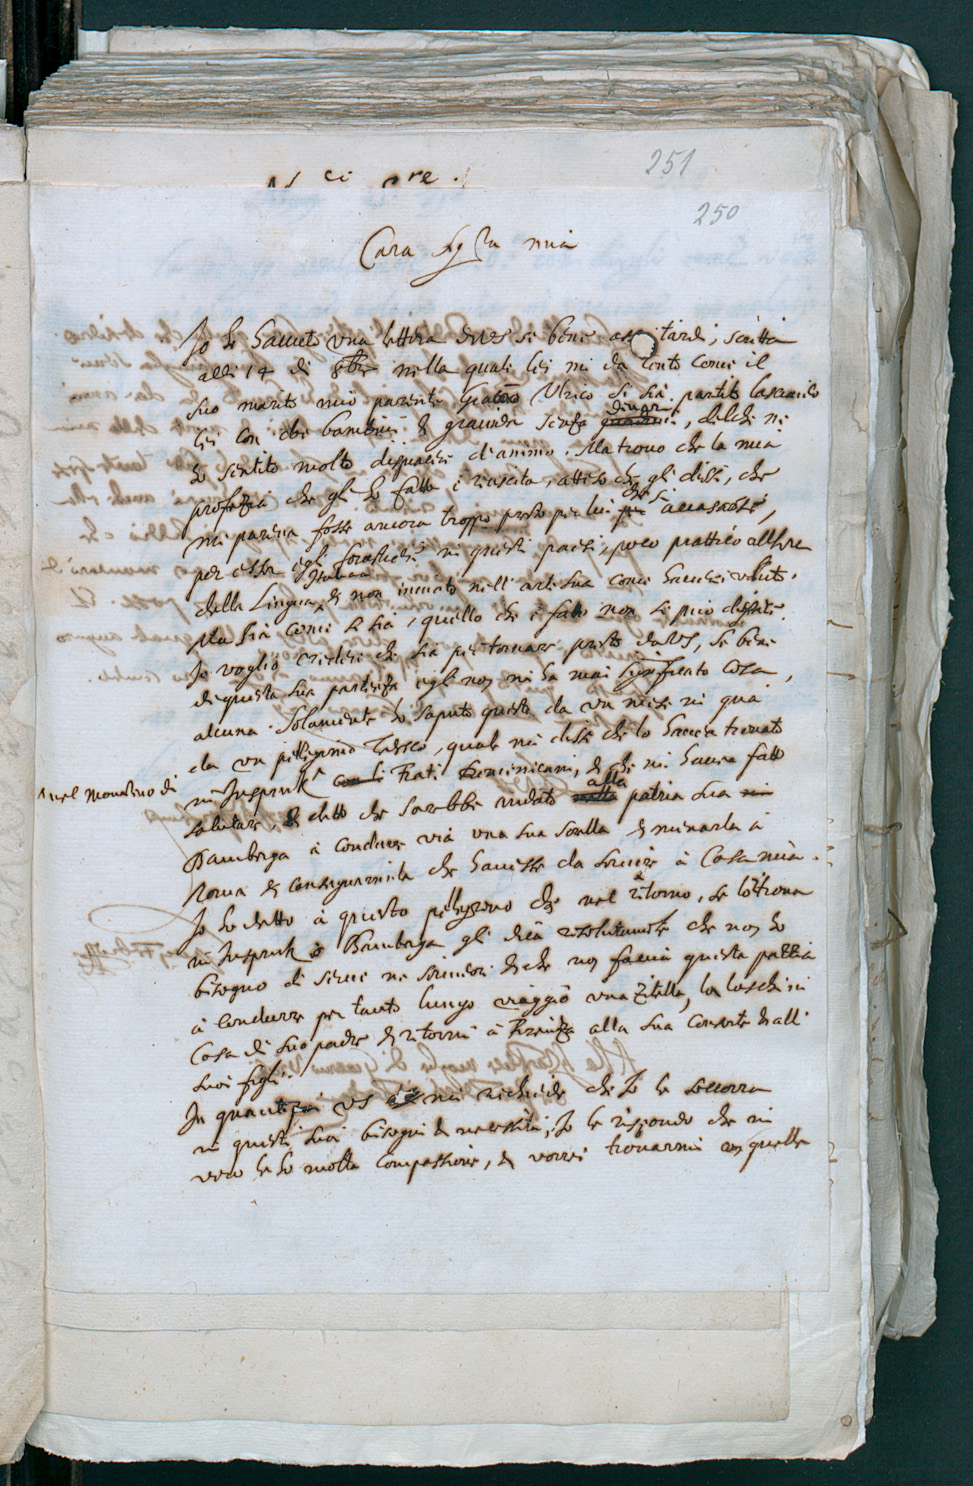 251
250
Cara Sig.ra mia
Io ho hauuto vna lettera di VS se bene tardi, scritta
alli 14 di 8bre nella quale lei mi da conto come il
suo marito mio parente Vlrico si sia partito lasciando
lei con doi bambini & grauida senza denari, del che ne
ho sentito molto dispiacere d'animo. Ma trouo che la mia
profezia che gli ho fatta è riuscita, atteso che gli dissi, che
mi pareua fosse ancora troppo presto per lui che si accasasse,
per esser egli forastiero in questi paesi, poco prattico all'hora
della lingua Italiana & non inuiato nell'arte sua come hauerei voluto.
Ma sia come si sia, quello che è fatto non si può disfare.
Io voglio credere che sia per tornare presto da VS, se bene
di questa sua partenza egli non mi ha mai scritto cosa
alcuna. Solamente ho saputo questo da vn mese in qua
da vn pellegrino Tedesco, quale mi disse che lo haueua trouato
in Inspruk Frati Dominicani, & che mi haueua fatto
nel Monasterio di
salutare, & detto che sarebbe andato alla patria sua
Bamberga à condurre via vna sua sorella & menarla à
Roma & consegnarmela che hauesse da seruire à casa mia.
Io ho detto à questo pellegrino che nel ritorno, se lo troua
in Inspruk ò Bamberga gli dica risolutamente che non ho
bisogno di serue ne seruidori & che non faccia questa pazzia
à condurre per tanto lungo viaggio vna zitella, la lasci in
casa di suo padre & ritorni à Firenza alla sua consorte & alli
suoi figli.
In quanto poi VS mi richiede che io la soccorra
in questi suoi bisogni & necessità; Io le rispondo che in
vero le ho molta compassione, & vorrei trouarmi in quelle